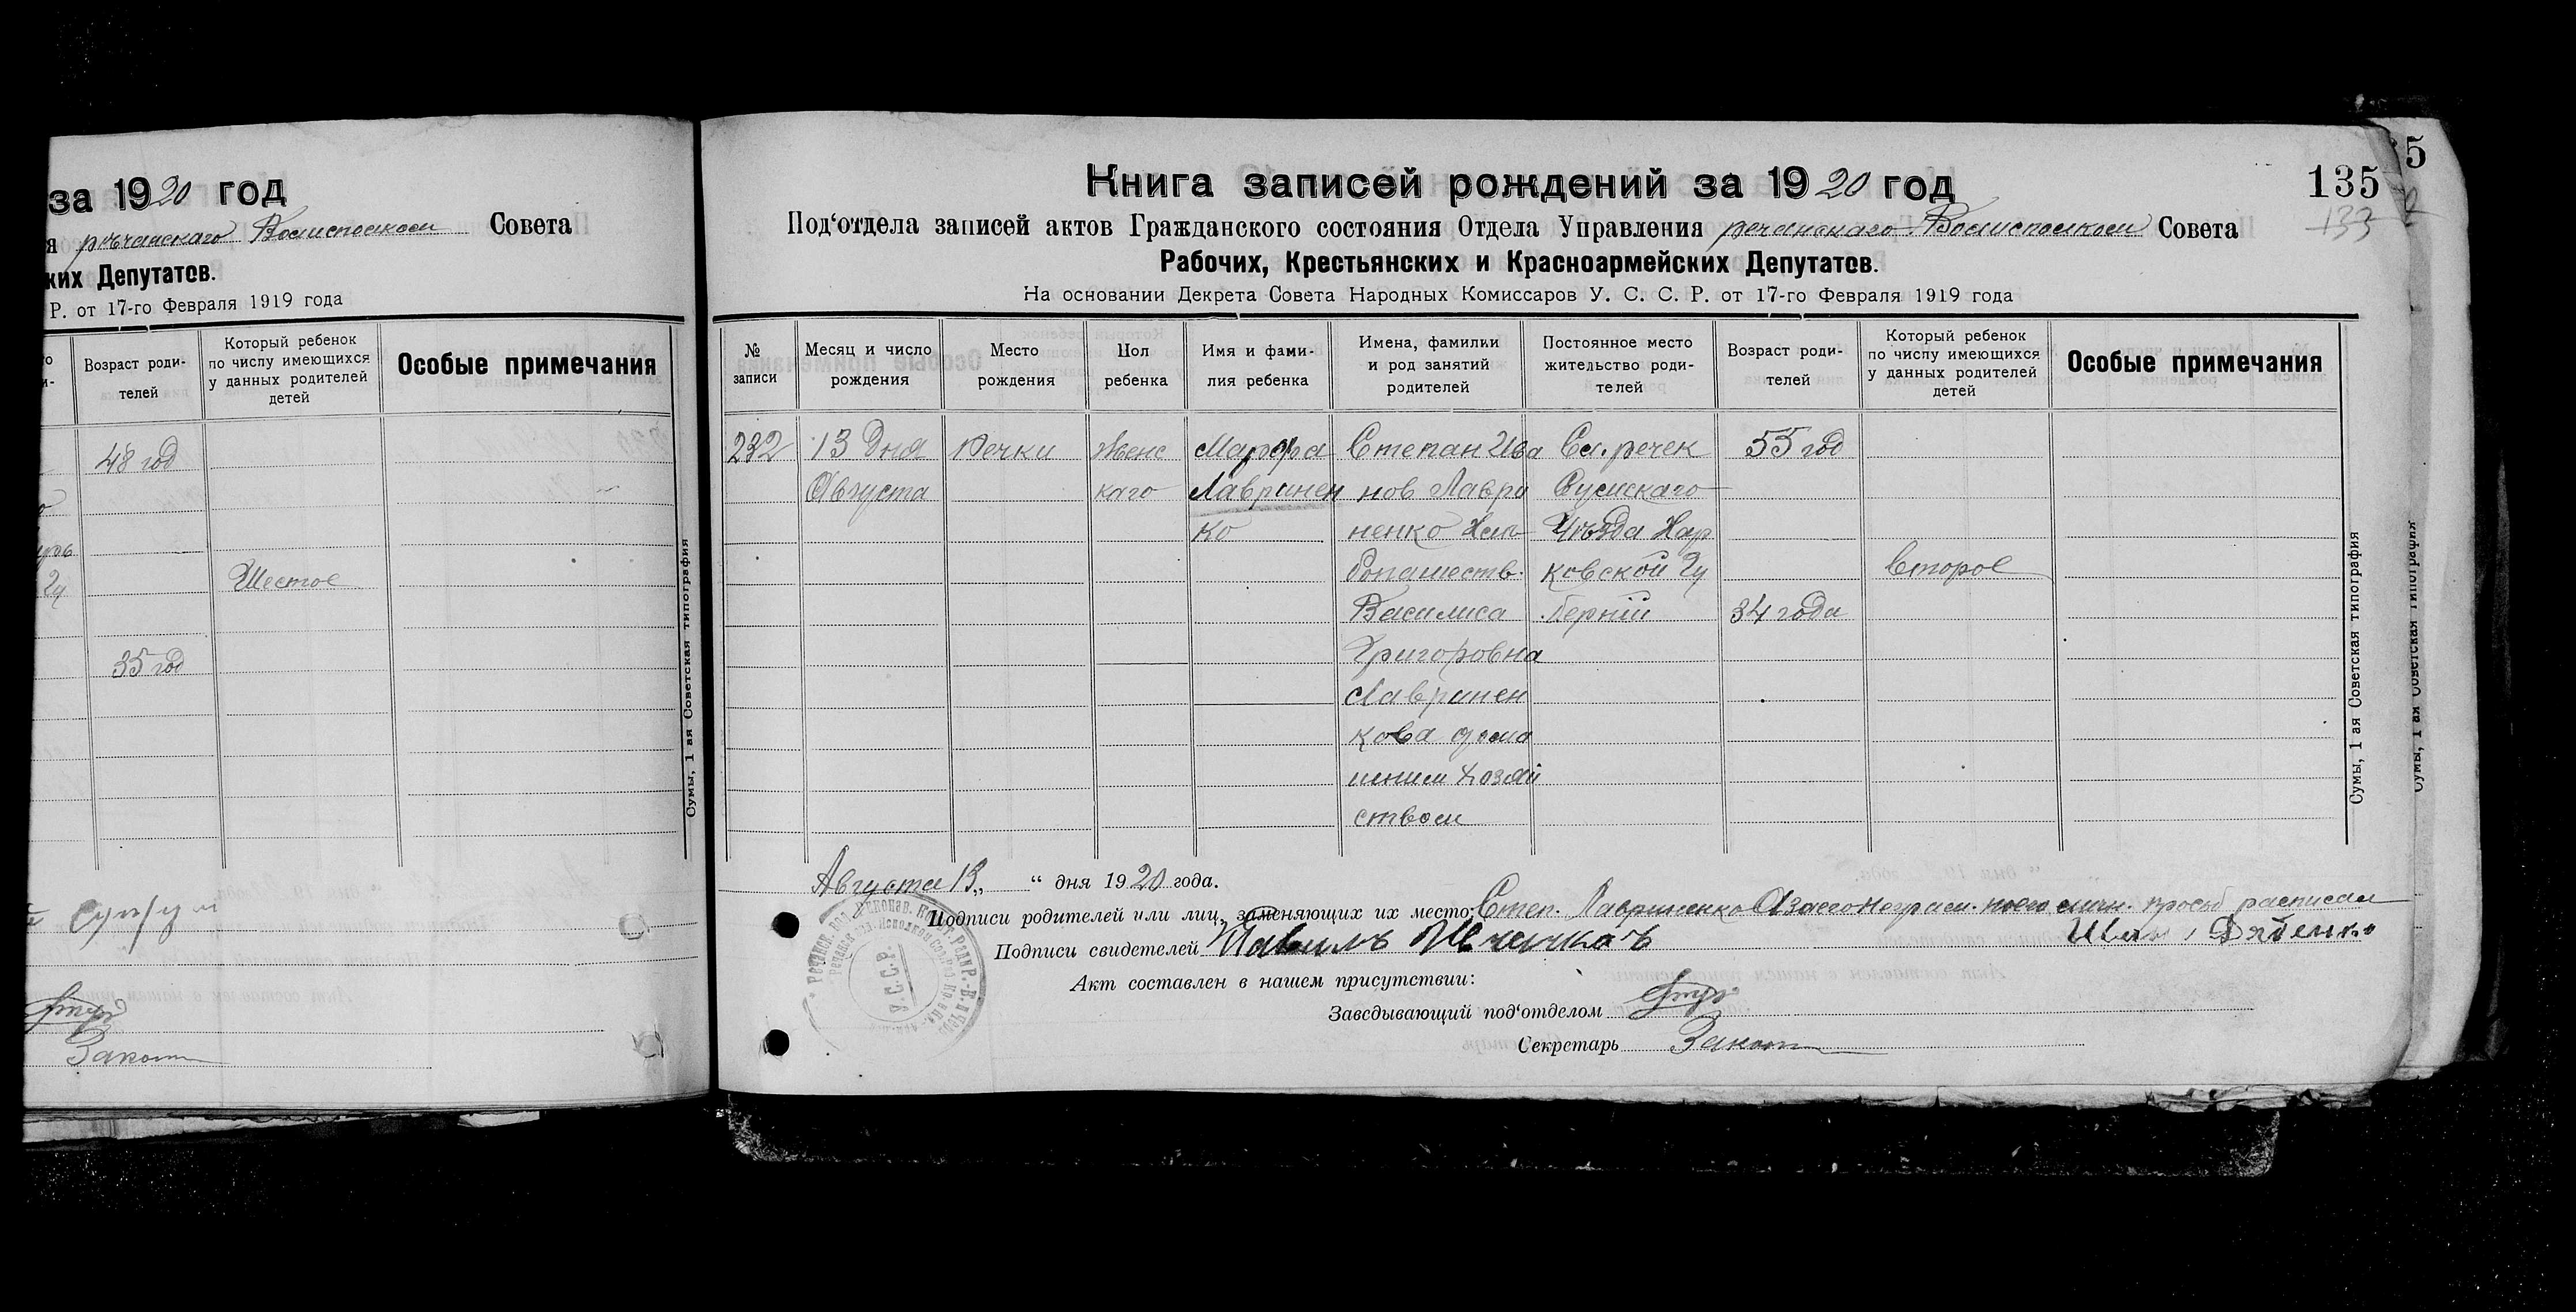 за 1920 год
речанскаго Волисполком Совета
ких Депутатов.
Р. от 17-го Февраля 1919 года
Возраст роди-
телей
Который ребенок
по числу имеющихся
у данных родителей
детей
Особые примечания
48 год
Шестое
35 год
Сумы, 1 ая Советская типография
Закот
135
133
Книга записей рождений за 1920 год
Под‘отдела записей актов Гражданского состояния Отдела Управления речанскаго Волисполком Совета
Рабочих, Крестьянских и Красноармейских Депутатов.
На основании Декрета Совета Народных Комиссаров У. С. С. Р. от 17-го Февраля 1919 года
№
записи
Месяц и число
рождения
Место
рождения
Пол
ребенка
Имя и фами-
лия ребенка
Имена, фамилии
и род занятий
родителей
Постоянное место
жительство роди-
телей
Возраст роди-
телей
Который ребенок
по числу имеющихся
у данных родителей
детей
Особые примечания
232
13 Дня
Августа
Речки
Женс
каго
Марфа
Лавринен
ко
Степан Ива
нов Лаври
ненко Хле
бопашеств.
Василиса
Григоровна
Лавринен
кова дома
шним хозяй
ством
Сл. речек
Сумскаго
Уъзда Хар
ковской Гу
берніи
55 год
34 года
Второе
Сумы, 1 ая Советская типография
Августа 13 „ “ дня 1920 года.
Подписи родителей или лиц, заменяющих их место: Степ. Лавриненко А за его неграм. по его личн. прозьб расписал
Дяденко
Подписи свидетелей
Акт составлен в нашем присутствии:
Заведывающий под‘отделом
Секретарь Закот
У.С.С.Р.
5
Сумы, 1 ая Советская типография